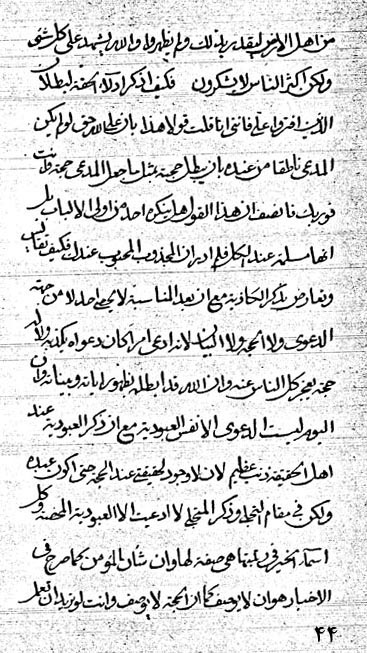 من اهل الارض ليقدر بذلك ولم يظهروا والله يشهد على كل شئ
ولكن اكثر الناس لا يشكرون فكيف اذكر ادلاء الحقة لبطلان
الذين افتروا على فانى انا قلت قولا هذا بان على الله حق لو لم يكن
المدعى ناطقا من عنده بان يبطل حجته بمثل ما جعل المدعى حجته وانت
فوربك فانصف ان هذا القول هل ينكره احد من اولى الالباب بل
انها مسلمة عند الكل فلم ادر ان المجذوب المحبوب عندك فكيف يقابلنى
ويعارض بذكر الكاذبة مع ان بعد المناسبة لا يخفى على احد لا من جهة
الدعوى ولا الحجة ولا البيان لانه ادعى امرا كان دعواه يكذبه ولا له
حجة يعجز كل الناس عنه وان الله قد ابطله بظهور اياته وبيناته وان
اليوم ليست الدعوى الا نفس العبودية مع ان ذكر العبودية عند
اهل الحقيقة ذنب عظيم لان لا وجود لحقيقة عند الحجة حتى اكون عبده
ولكن فى مقام التجلى وذكر المتجلى لا ادعيت الا العبودية المحضة وكل
اسماء الخير فى رتبتها هى صفة لها وان شأن المؤمن كما صرح فى
الاخبار هو ان لا يوصف كما ان الحجة لا يوصف وانت لو تريد ان تعمل
۴۴